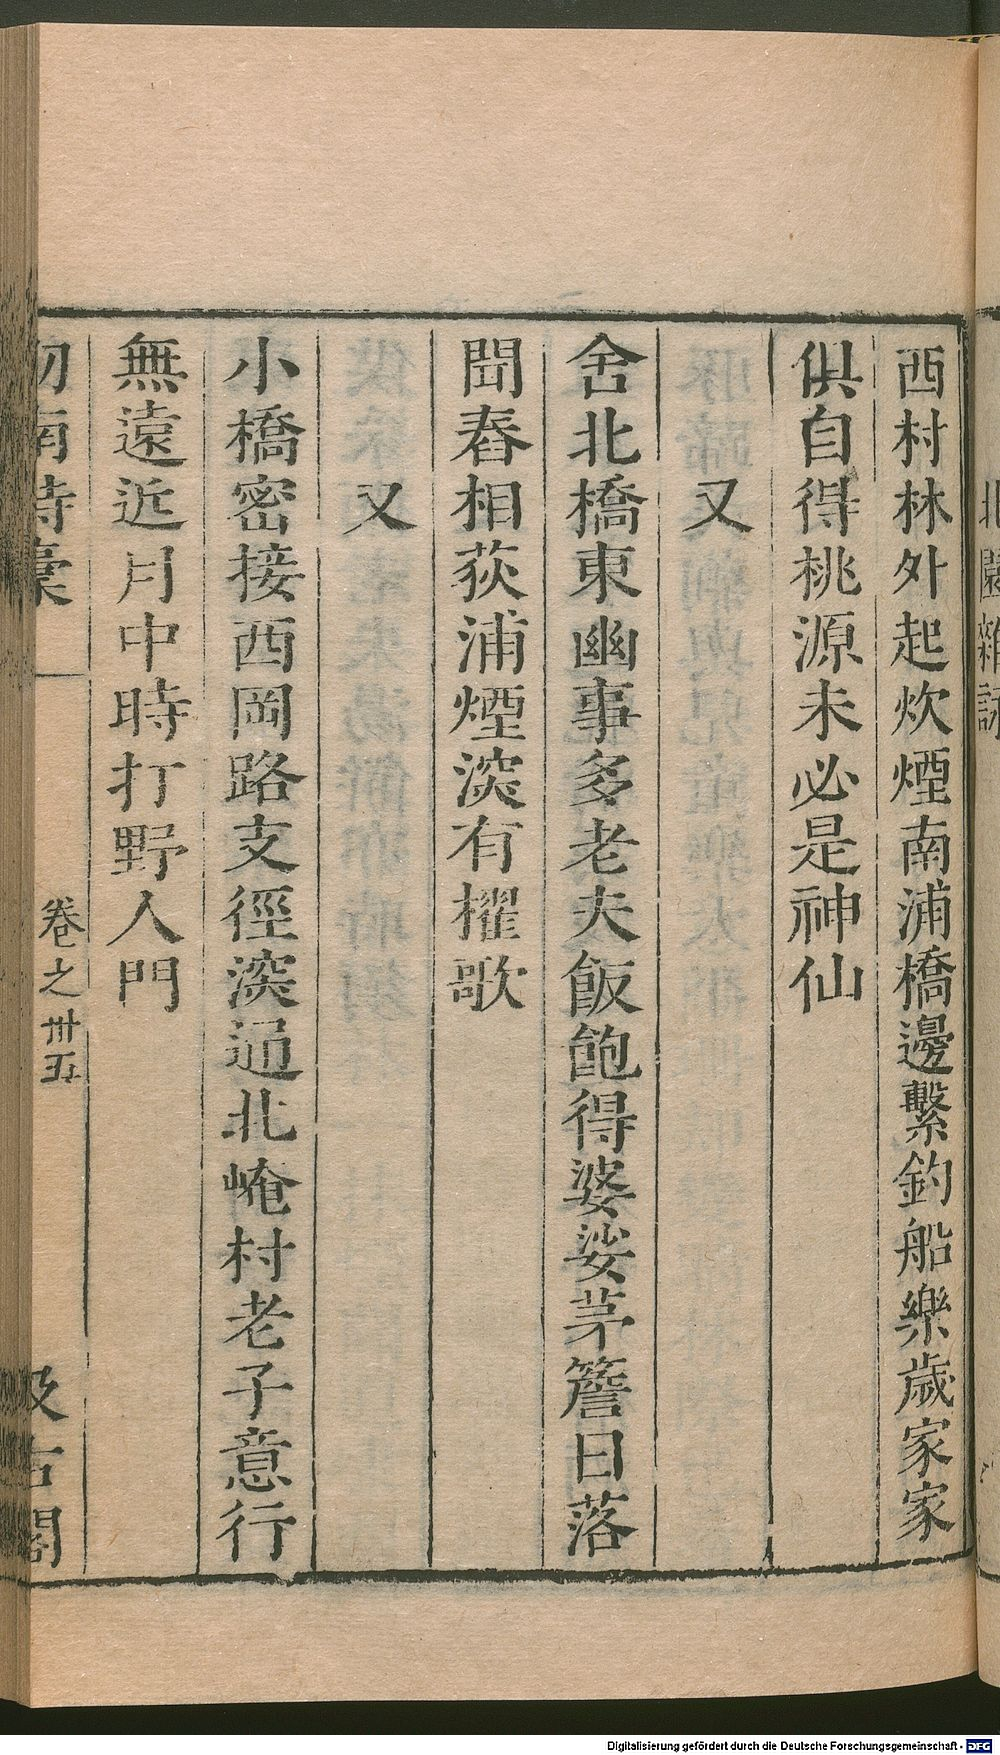 北園雜詠
西村林外起炊煙南浦橋邊繫釣船樂歲家家
俱自得桃源未必是神仙
又
舍北橋東幽事多老夫飯飽得婆娑茅簷日落
聞舂相荻浦煙深有櫂歌
又
小橋密接西岡路支徑深通北崦村老子意行
無遠近月中時打野人門
劒南詩稾
卷之卅五
汲古閣
Digitalisierung gefördert durch die Deutsche Forschungsgemeinschaft - DFG